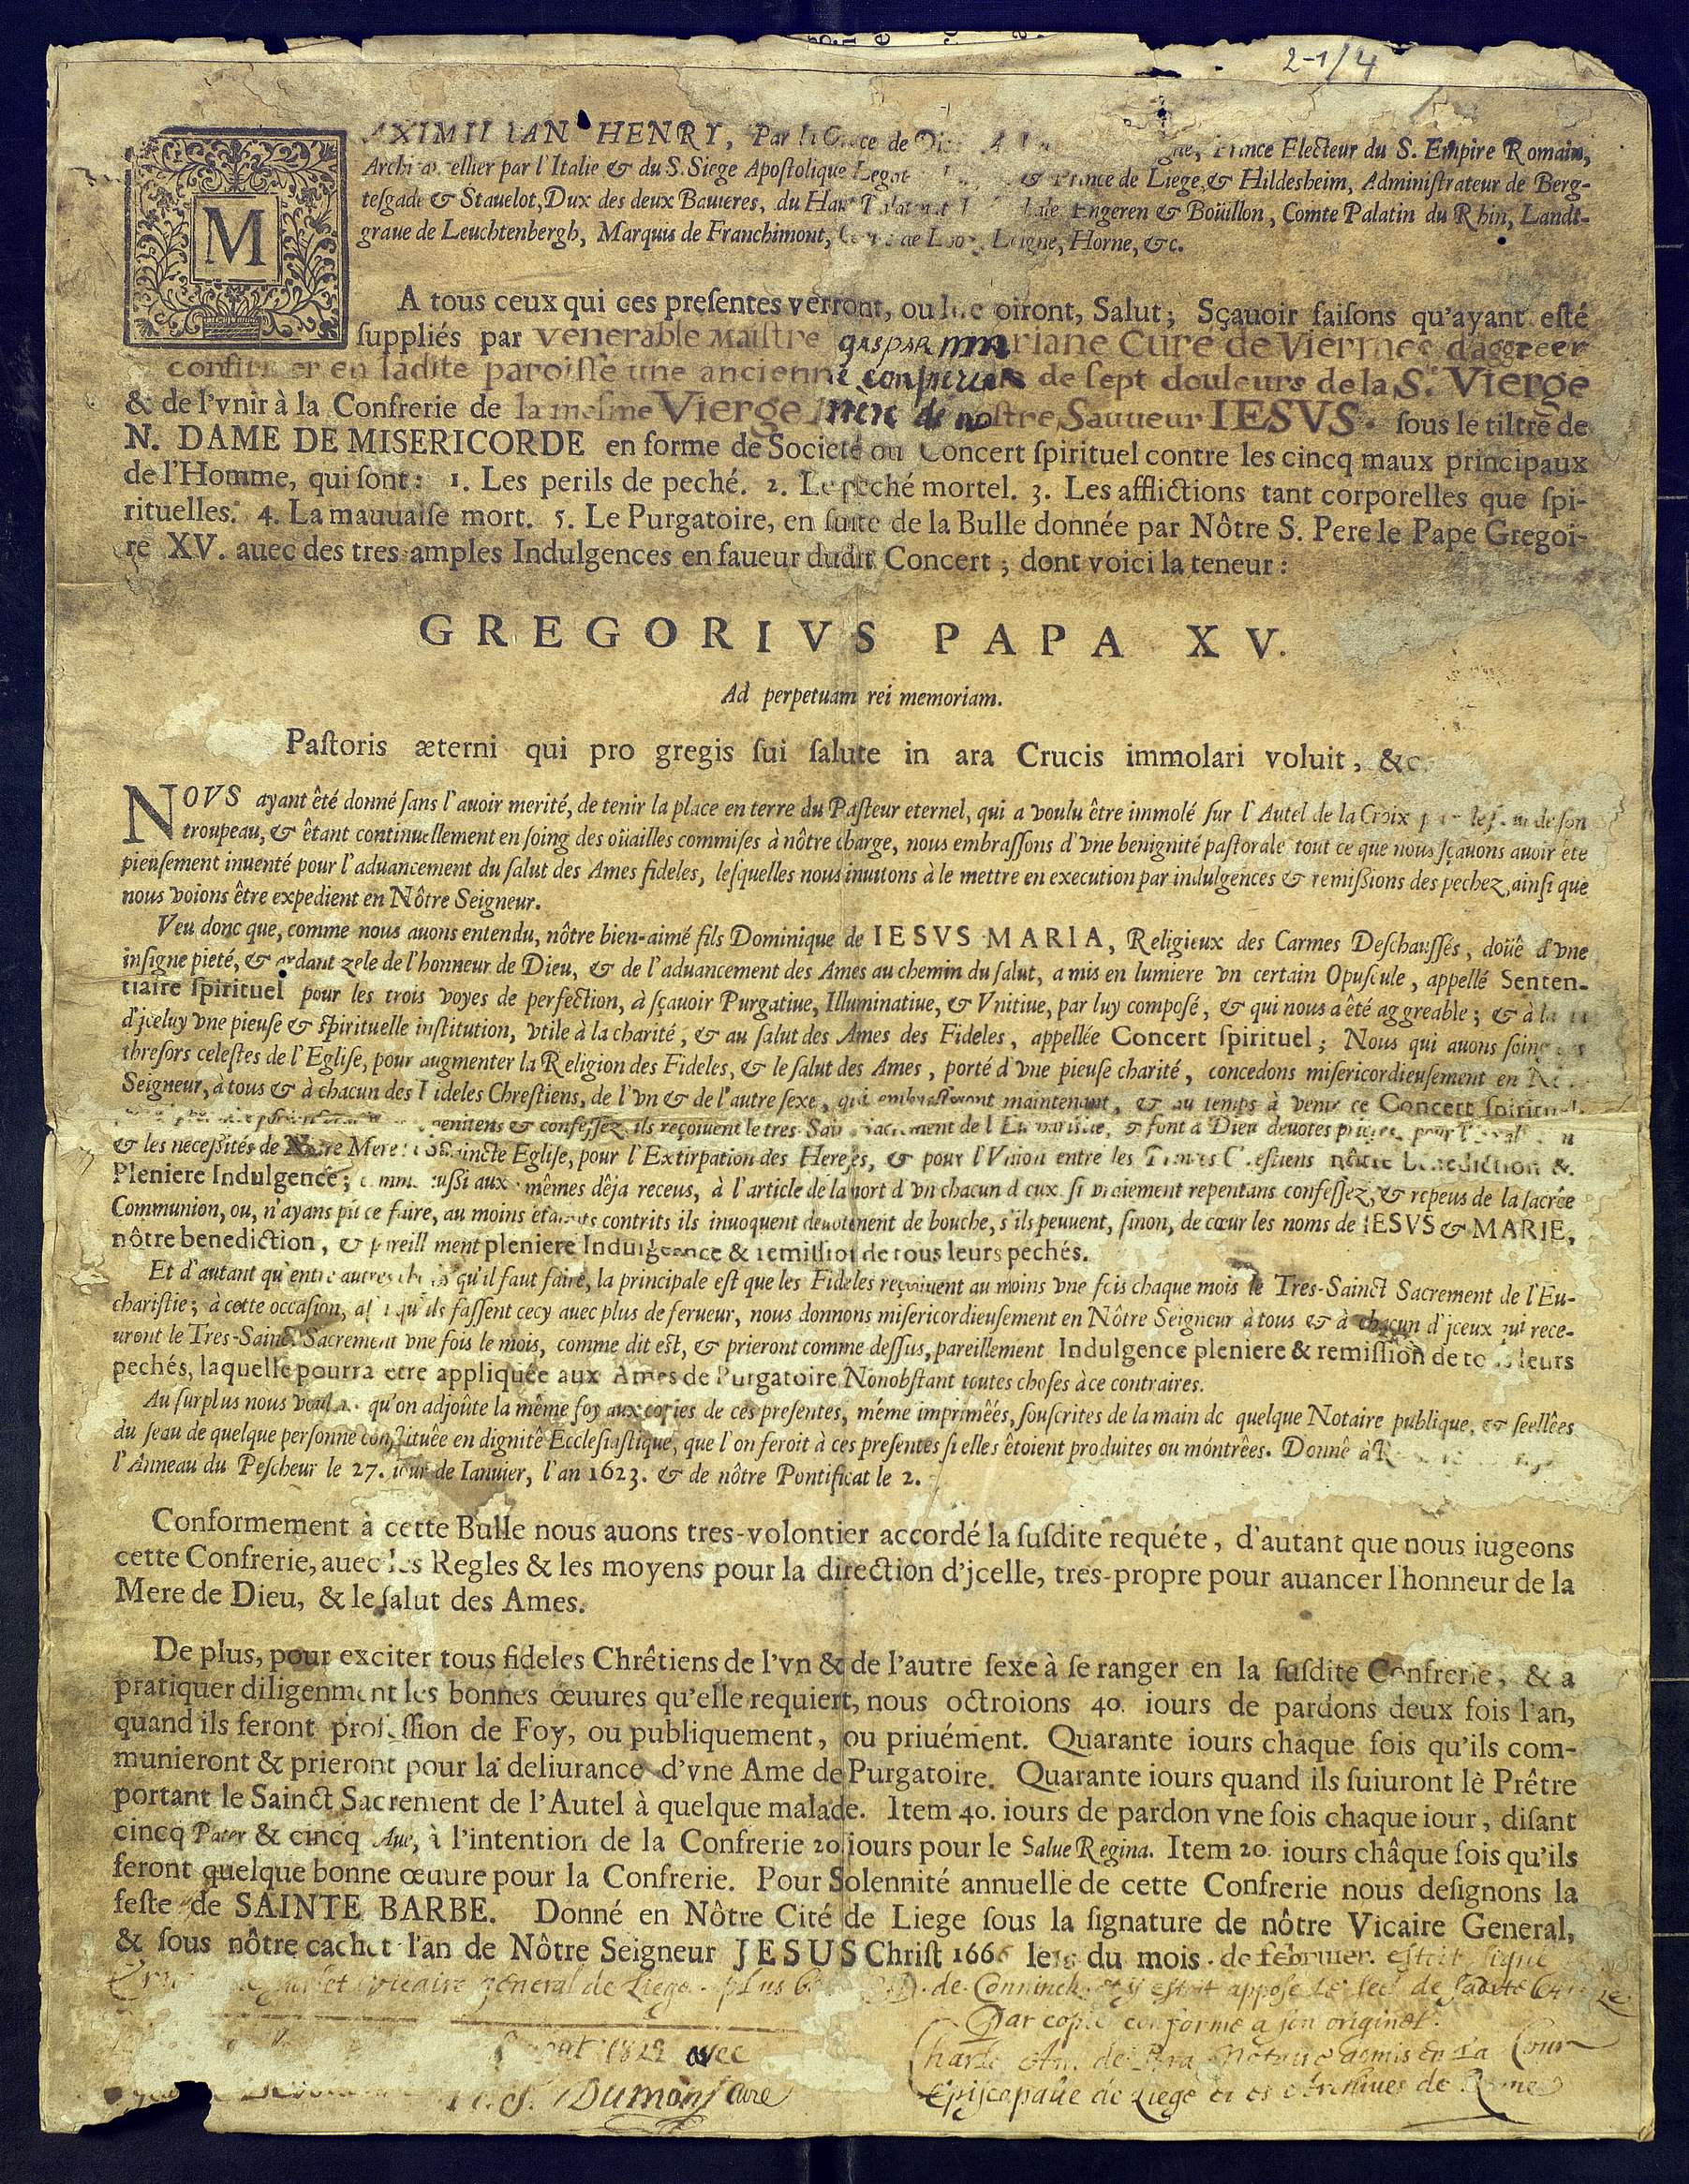 2-1/4
MAXIMILIAN HENRY, Par la Grace de Prince Electeur du S. Empire Romain,
Archi ellier par l'Italie & du S. Siege Apoſtolique Legat & Prince de Liege, & Hildesheim, Adminiſtrateur de Berg-
teſgade & Stauelot, Dux des deux Bauieres, du Haut Engeren & Boüillon, Comte Palatin du Rhin, Landt-
graue de Leuchtenbergh, Marquis de Franchimont, Horne, &c.
A tous ceux qui ces preſentes verront, ou oiront, Salut; Sçauoir faiſons qu'ayant eſté
ſuppliés par venerable Maiſtre gaspar riane Curé de Viermes d'aggreer
confirmer en ladite paroiſſe une ancienne confrerie de ſept douleurs de la Sᵉ. Vierge
& de l'vnir à la Confrerie de la meſme Vierge mère de noſtre Sauueur IESVS. ſous le tiltre de
N. DAME DE MISERICORDE en forme de Societé ou Concert ſpirituel contre les cincq maux principaux
de l'Homme, qui ſont: 1. Les perils de peché. 2. Le peché mortel. 3. Les afflictions tant corporelles que ſpi-
rituelles. 4. La mauuaiſe mort. 5. Le Purgatoire, en ſuite de la Bulle donnée par Nôtre S. Pere le Pape Gregoi-
re XV. auec des tres amples Indulgences en faueur dudit Concert; dont voici la teneur:
GREGORIVS PAPA XV.
Ad perpetuam rei memoriam.
Paſtoris æterni qui pro gregis ſui ſalute in ara Crucis immolari voluit, &c.
NOVS ayant êté donné ſans l'auoir merité, de tenir la place en terre du Paſteur eternel, qui a voulu être immolé ſur l'Autel de la Croix de ſon
troupeau, & êtant continuellement en ſoing des oüailles commiſes à nôtre charge, nous embraſſons d'vne benignité paſtorale tout ce que nous ſçauons auoir eté
pieuſement inuenté pour l'aduancement du ſalut des Ames fideles, leſquelles nous inuitons à le mettre en execution par indulgences & remiſſions des pechez, ainſi que
nous voions être expedient en Nôtre Seigneur.
Veu donc que, comme nous auons entendu, nôtre bien-aimé fils Dominique de IESVS MARIA, Religieux des Carmes Deſchauſſés, doüé d'vne
inſigne pieté, & ardant zele de l'honneur de Dieu, & de l'aduancement des Ames au chemin du ſalut, a mis en lumiere vn certain Opuſcule, appellé Senten-
tiaire ſpirituel pour les trois voyes de perfection, à ſçauoir Purgatiue, Illuminatiue, & Vnitiue, par luy compoſé, & qui nous a êté aggreable; & à la
d'jceluy vne pieuſe & ſpirituelle inſtitution, vtile à la charité, & au ſalut des Ames des Fideles, appellée Concert ſpirituel; Nous qui auons ſoing
threſors celeſtes de l'Egliſe, pour augmenter la Religion des Fideles, & le ſalut des Ames, porté d'vne pieuſe charité, concedons miſericordieuſement en
Seigneur, à tous & à chacun des Fideles Chreſtiens, de l'vn & de l'autre ſexe, qui embraſſeront maintenant, & au temps à venir ce Concert ſpirituel,
penitens & confeſſez, ils reçoiuent le tres-Sainct Sacrement de l'Euchariſtie, & font à Dieu deuotes prieres pour
& les neceſſités de Nôtre Mere la Saincte Egliſe, pour l'Extirpation des Hereſies, & pour l'Vnion entre les Princes Chreſtiens nôtre benediction &
Pleniere Indulgence; comme auſſi aux mêmes dêja receus, à l'article de la mort d'vn chacun d'eux ſi vraiement repentans confeſſez, & repeus de la ſacrée
Communion, ou, n'ayans pû ce faire, au moins étants contrits ils inuoquent deuotement de bouche, s'ils peuuent, ſinon, de cœur les noms de IESVS & MARIE,
nôtre benediction, & pareillement pleniere Indulgence & remiſſion de tous leurs pechés.
Et d'autant qu'entre autres choſes qu'il faut faire, la principale eſt que les Fideles reçoiuent au moins vne fois chaque mois le Tres-Sainct Sacrement de l'Eu-
chariſtie; à cette occaſion, afin qu'ils faſſent cecy auec plus de ferueur, nous donnons miſericordieuſement en Nôtre Seigneur à tous & à chacun d'jceux qui rece-
uront le Tres-Sainct Sacrement vne fois le mois, comme dit eſt, & prieront comme deſſus, pareillement Indulgence pleniere & remiſſion de tous leurs
pechés, laquelle pourra etre appliquée aux Ames de Purgatoire. Nonobſtant toutes choſes à ce contraires.
Au ſurplus nous voulons qu'on adjoûte la même foy aux copies de ces preſentes, méme imprimêês, ſouſcrites de la main de quelque Notaire publique, & ſeellêes
du ſeau de quelque perſonne conſtituée en dignitê Eccleſiaſtique, que l'on feroit à ces preſentes ſi elles êtoient produites ou móntrêes. Donné à
l'Anneau du Peſcheur le 27. iour de Ianuier, l'an 1623. & de nôtre Pontificat le 2.
Conformement à cette Bulle nous auons tres-volontier accordé la ſuſdite requéte, d'autant que nous iugeons
cette Confrerie, auec les Regles & les moyens pour la direction d'jcelle, tres-propre pour auancer l'honneur de la
Mere de Dieu, & le ſalut des Ames.
De plus, pour exciter tous fideles Chrêtiens de l'vn & de l'autre ſexe à ſe ranger en la ſuſdite Confrerie, & a
pratiquer diligenment les bonnes œuures qu'elle requiert, nous octroions 40. iours de pardons deux fois l'an,
quand ils feront profeſſion de Foy, ou publiquement, ou priuément. Quarante iours chaque fois qu'ils com-
munieront & prieront pour la deliurance d'vne Ame de Purgatoire. Quarante iours quand ils ſuiuront lè Prêtre
portant le Sainct Sacrement de l'Autel à quelque malade. Item 40. iours de pardon vne fois chaque iour, diſant
cincq Pater & cincq Aue, à l'intention de la Confrerie 20 iours pour le Salue Regina. Item 20. iours châque fois qu'ils
feront quelque bonne œuure pour la Confrerie. Pour Solennité annuelle de cette Confrerie nous deſignons la
feſte de SAINTE BARBE. Donné en Nôtre Cité de Liege ſous la ſignature de nôtre Vicaire General,
& ſous nôtre cachet l'an de Nôtre Seigneur JESUS Chriſt 1666 le du mois de februier. estoit signé
et vicaire general de Liege. plus D. de Conninck et y estoit apposé le seel de
Par copie conforme a son originel.
1822 avec
Notaire admis en la Cour
Dumont curé
Episcopalle de Liege et es archives de Rome